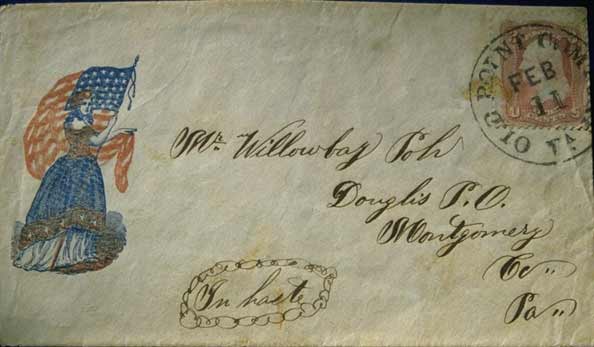 OLD POINT COM
VA
FEB
11
Mr. Willowbay Poh
Douglis P. O.
Montgomery
Co „
Pa „
In haste